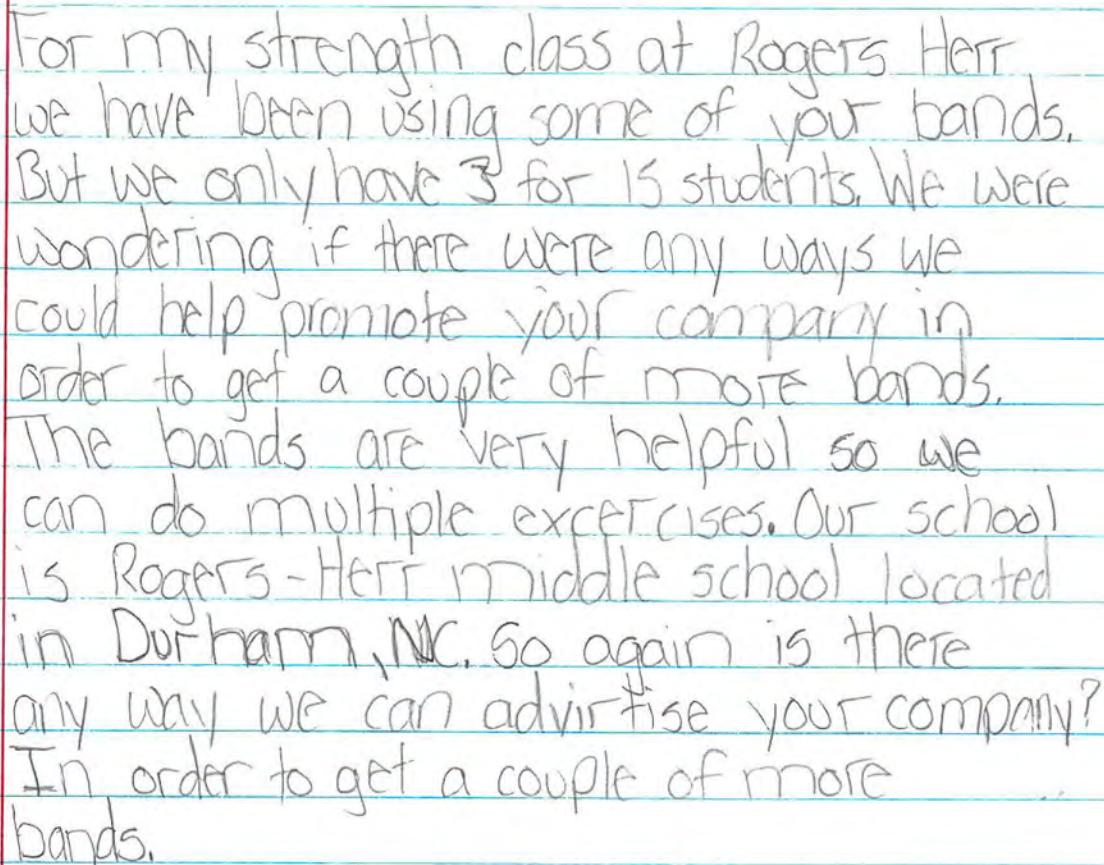 For my strength class at Rogers Herr
we have been using some of your bands.
But we only have 3 for 15 students. We were
wondering if there were any ways we
could help promote your company in
order to get a couple of more bands.
The bands are very helpful so we
can do multiple excercises. Our school
is Rogers-Herr middle school located
in Durham, NC. So again is there
any way we can advirtise your company?
In order to get a couple of more
bands.